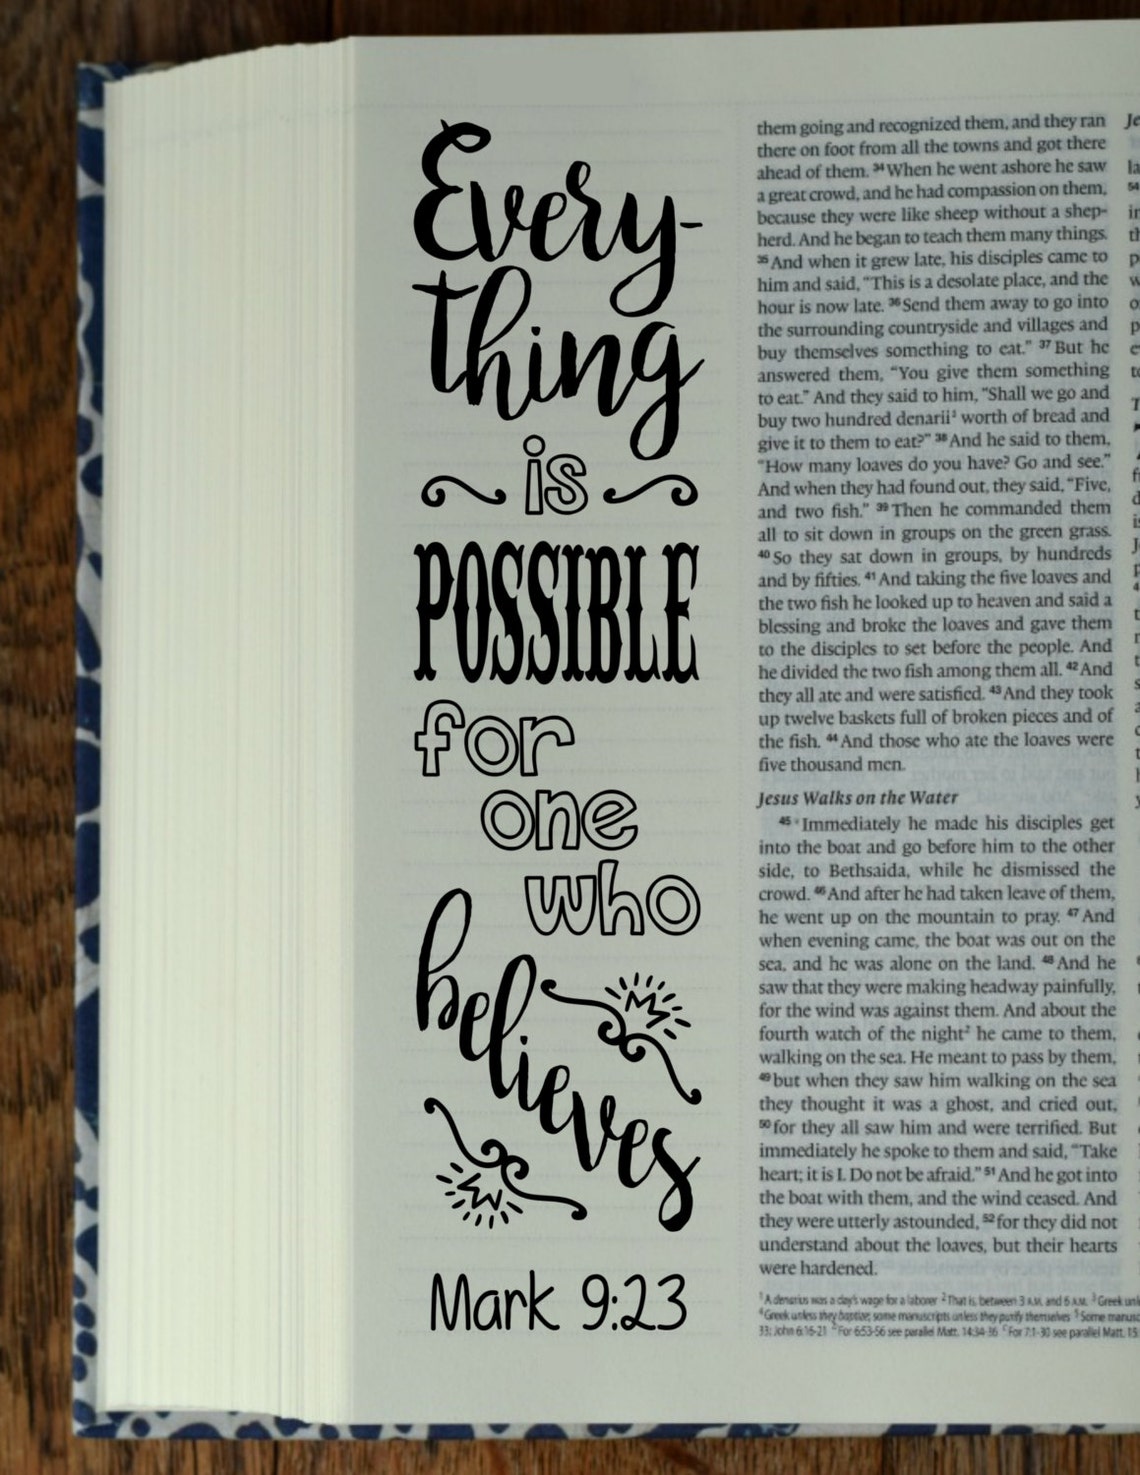 Every-
thing
is
POSSIBLE
for
one
who
believes
Mark 9:23
them going and recognized them, and they ran
there on foot from all the towns and got there
ahead of them. 34 When he went ashore he saw
a great crowd, and he had compassion on them,
because they were like sheep without a shep-
herd. And he began to teach them many things.
35 And when it grew late, his disciples came to
him and said, “This is a desolate place, and the
hour is now late. 36 Send them away to go into
the surrounding countryside and villages and
buy themselves something to eat.” 37 But he
answered them, “You give them something
to eat.” And they said to him, “Shall we go and
buy two hundred denarii1 worth of bread and
give it to them to eat?” 38 And he said to them,
“How many loaves do you have? Go and see.”
And when they had found out, they said, “Five,
and two fish.” 39 Then he commanded them
all to sit down in groups on the green grass.
40 So they sat down in groups, by hundreds
and by fifties. 41 And taking the five loaves and
the two fish he looked up to heaven and said a
blessing and broke the loaves and gave them
to the disciples to set before the people. And
he divided the two fish among them all. 42 And
they all ate and were satisfied. 43 And they took
up twelve baskets full of broken pieces and of
the fish. 44 And those who ate the loaves were
five thousand men.
Jesus Walks on the Water
45 Immediately he made his disciples get
into the boat and go before him to the other
side, to Bethsaida, while he dismissed the
crowd. 46 And after he had taken leave of them,
he went up on the mountain to pray. 47 And
when evening came, the boat was out on the
sea, and he was alone on the land. 48 And he
saw that they were making headway painfully,
for the wind was against them. And about the
fourth watch of the night2 he came to them,
walking on the sea. He meant to pass by them,
49 but when they saw him walking on the sea
they thought it was a ghost, and cried out,
50 for they all saw him and were terrified. But
immediately he spoke to them and said, “Take
heart; it is I. Do not be afraid.” 51 And he got into
the boat with them, and the wind ceased. And
they were utterly astounded, 52 for they did not
understand about the loaves, but their hearts
were hardened.
1 A denarius was a day's wage for a laborer 2 That is, between 3 A.M. and 6 A.M. 3 Greek
4 Greek unless they baptize; some manuscripts unless they purify themselves 5 Some
33; John 6:16-21 For 6:53-56 see parallel Matt. 14:34-36 For 7:1-30 see parallel Matt.